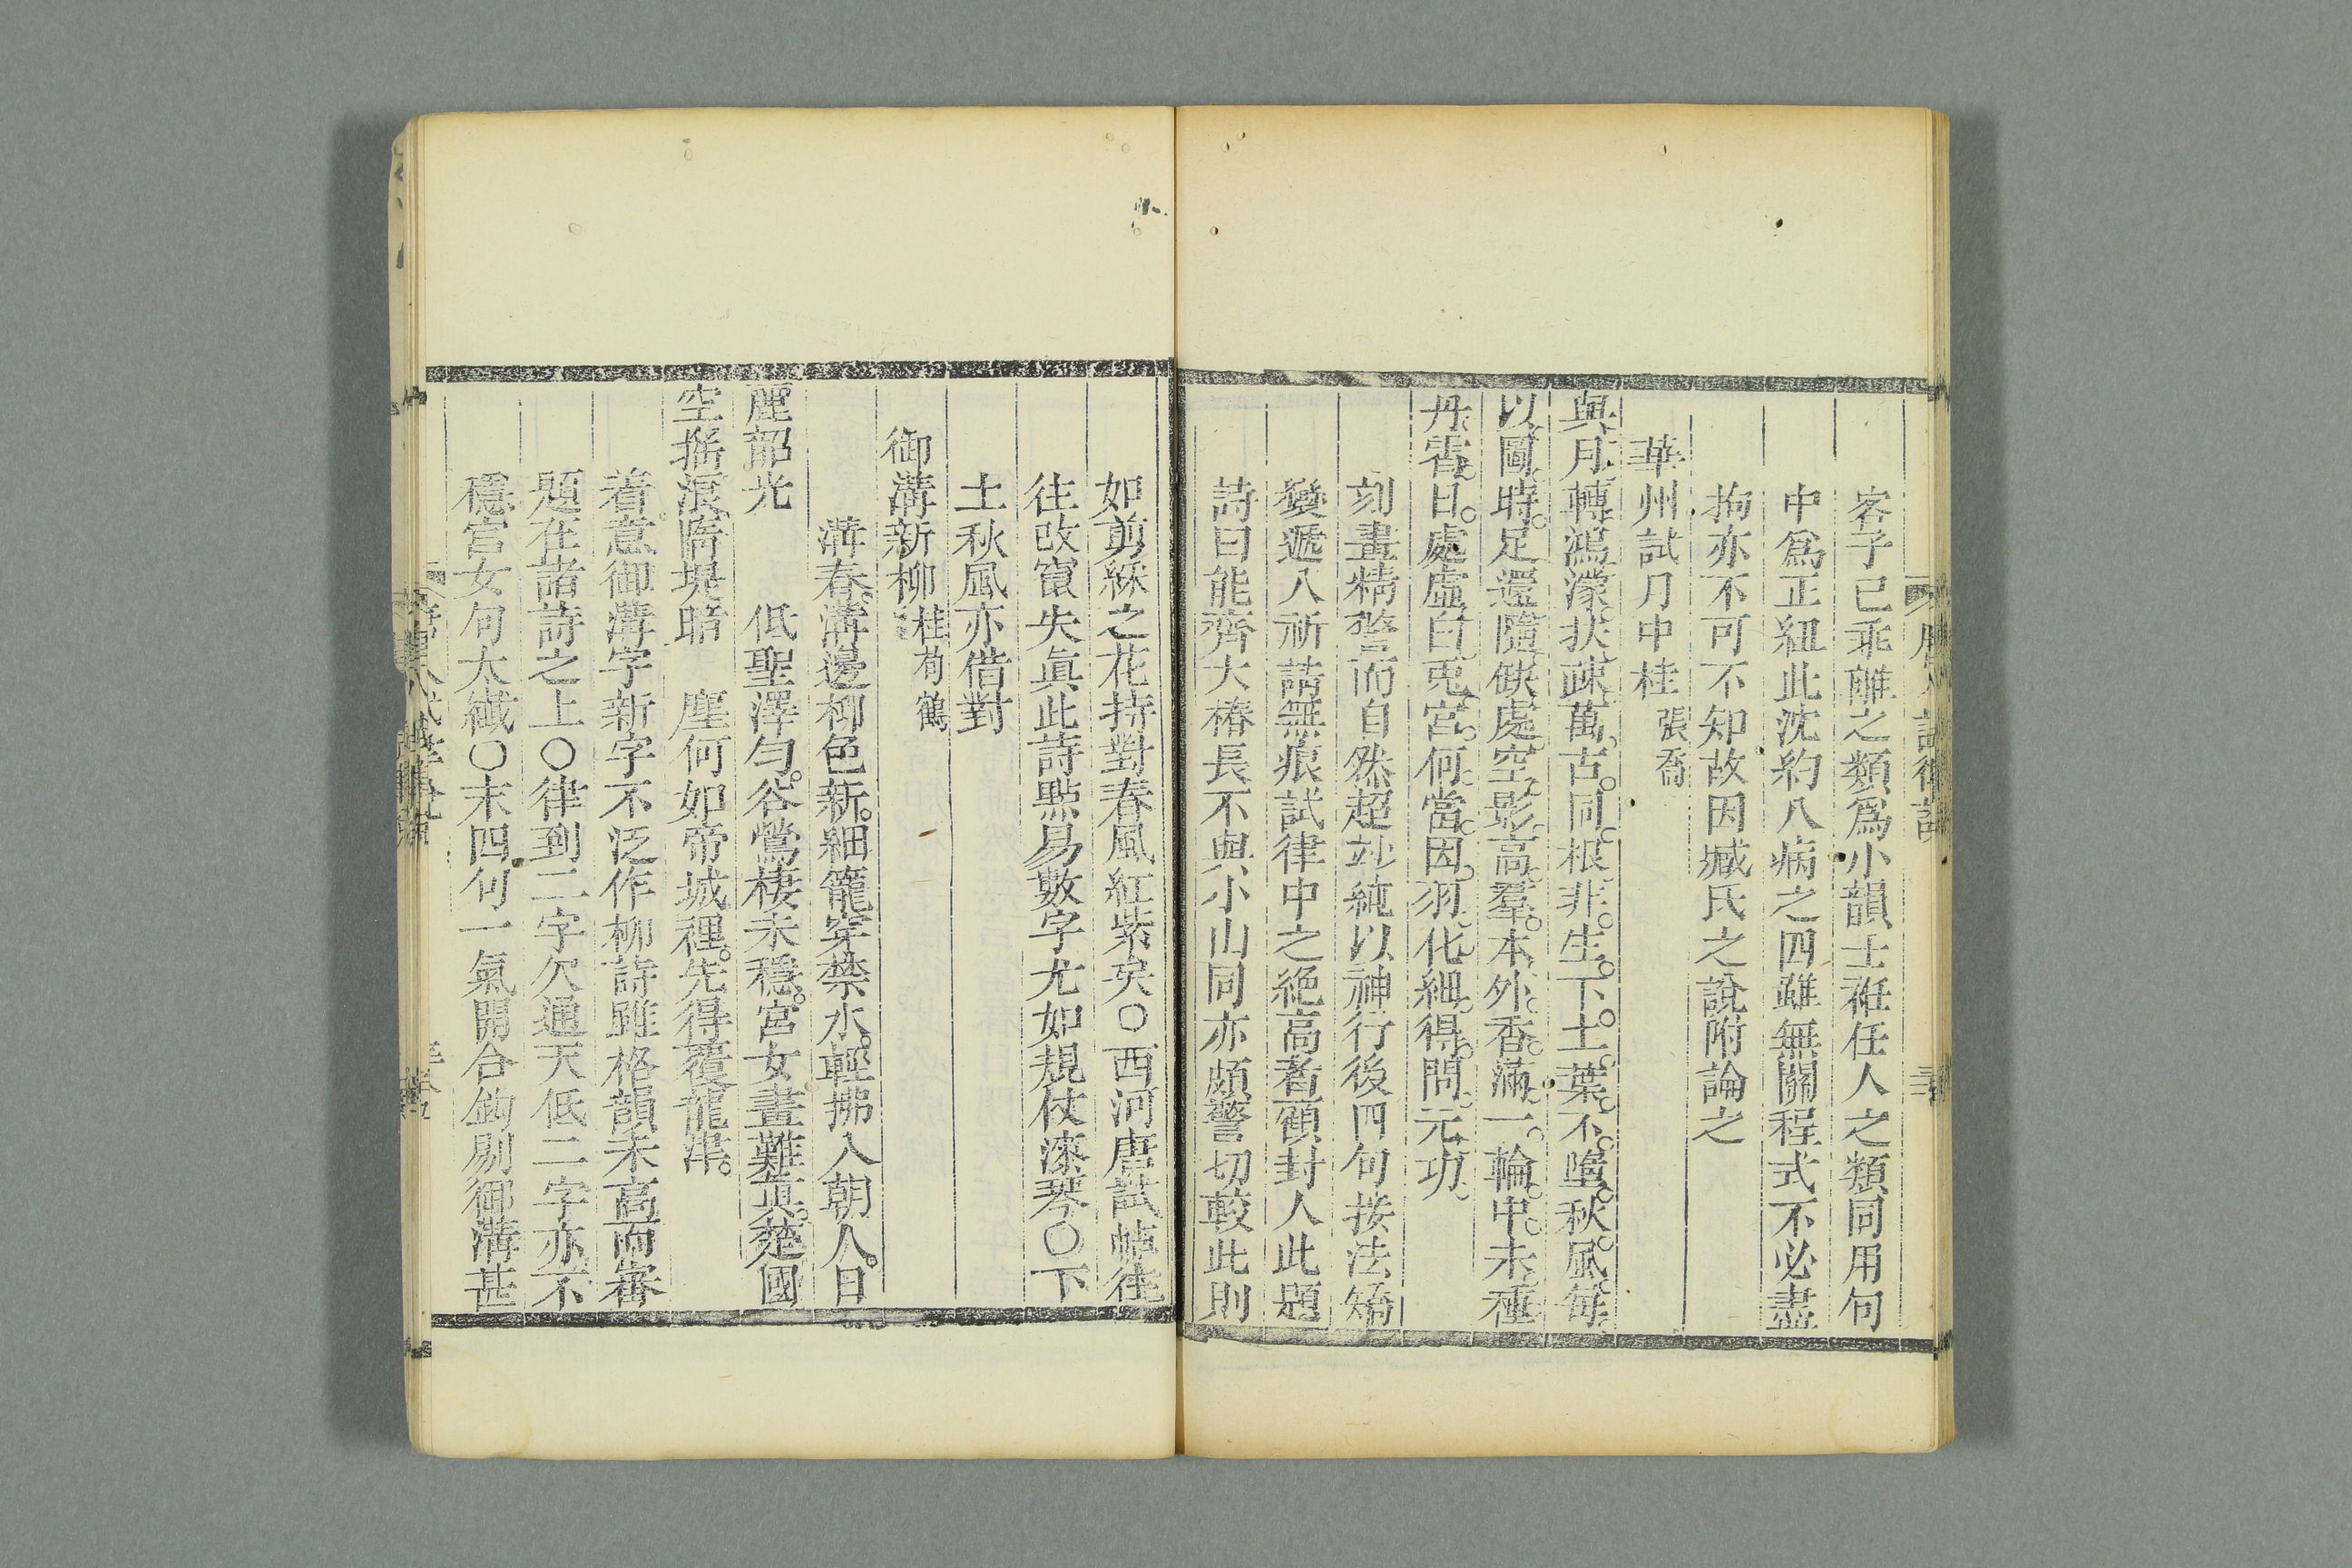 客子已乖離之類爲小韻士衽任人之類同用句
中爲正紐此沈約八病之四雖無關程式不必盡
拘亦不可不知故因臧氏之說附論之
華州試月中桂 張喬
與月轉鴻濛扶疎萬古同根非生下土葉不墮秋風每
以圓時足還隨缺處空影高羣木外香滿一輪中未種
丹霄日應虛白兎宮何當因羽化細得問元功
刻畫精警而自然超妙純以神行後四句接法矯
變遞入祈請無痕試律中之絕高者顧封人此題
詩曰能齊大椿長不與小山同亦頗警切較此則
如剪綵之花持對春風紅紫矣〇西河唐試帖往
往改竄失眞此詩點易數字尤如規仗漆琴〇下
土秋風亦借對
御溝新柳 桂荀鶴
溝春溝邊柳色新細籠穿禁水輕拂入朝人日
低聖澤勻谷鶯棲未穩宮女畫難眞楚國
空搖浪隋堤暗 塵何如帝城裡先得覆龍津
着意御溝字新字不泛作柳詩雖格韻未高而審
題在諸詩之上〇律到二字欠通天低二字亦不
穩宮女句太纎〇末四句一氣開合鈎剔御溝甚